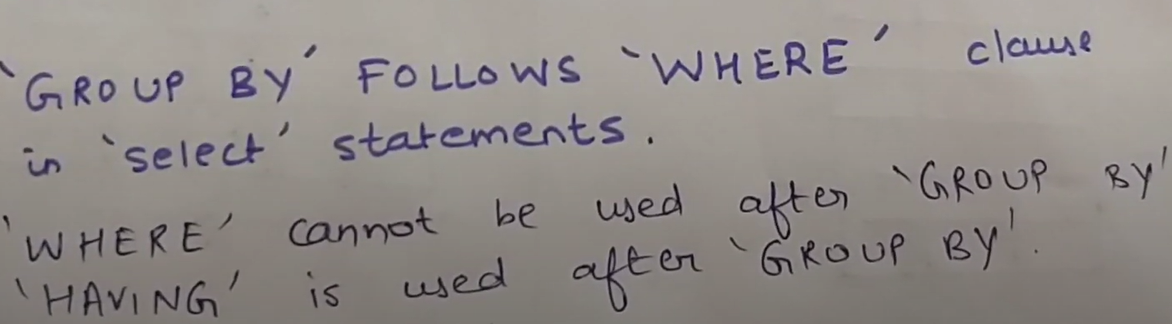 'GROUP BY' FOLLOWS 'WHERE' clause
in 'select' statements.
'WHERE' cannot be used after 'GROUP BY'
'HAVING' is used after 'GROUP BY'.